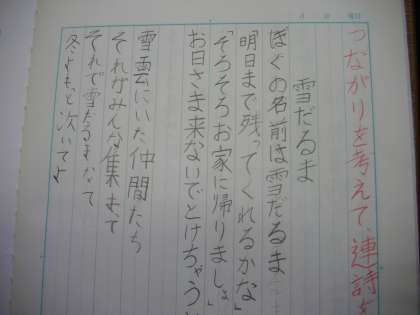 つながりを考えて、連詩を
雪だるま
ぼくの名前は雪だるま……
「明日まで残ってくれるかな」
「そろそろお家に帰りましょ」
お日さま来ないでとけちゃうい
雪雲にいた仲間たち
それがみんな集まって
それで雪だるまなって
冬よもっと次いてよ